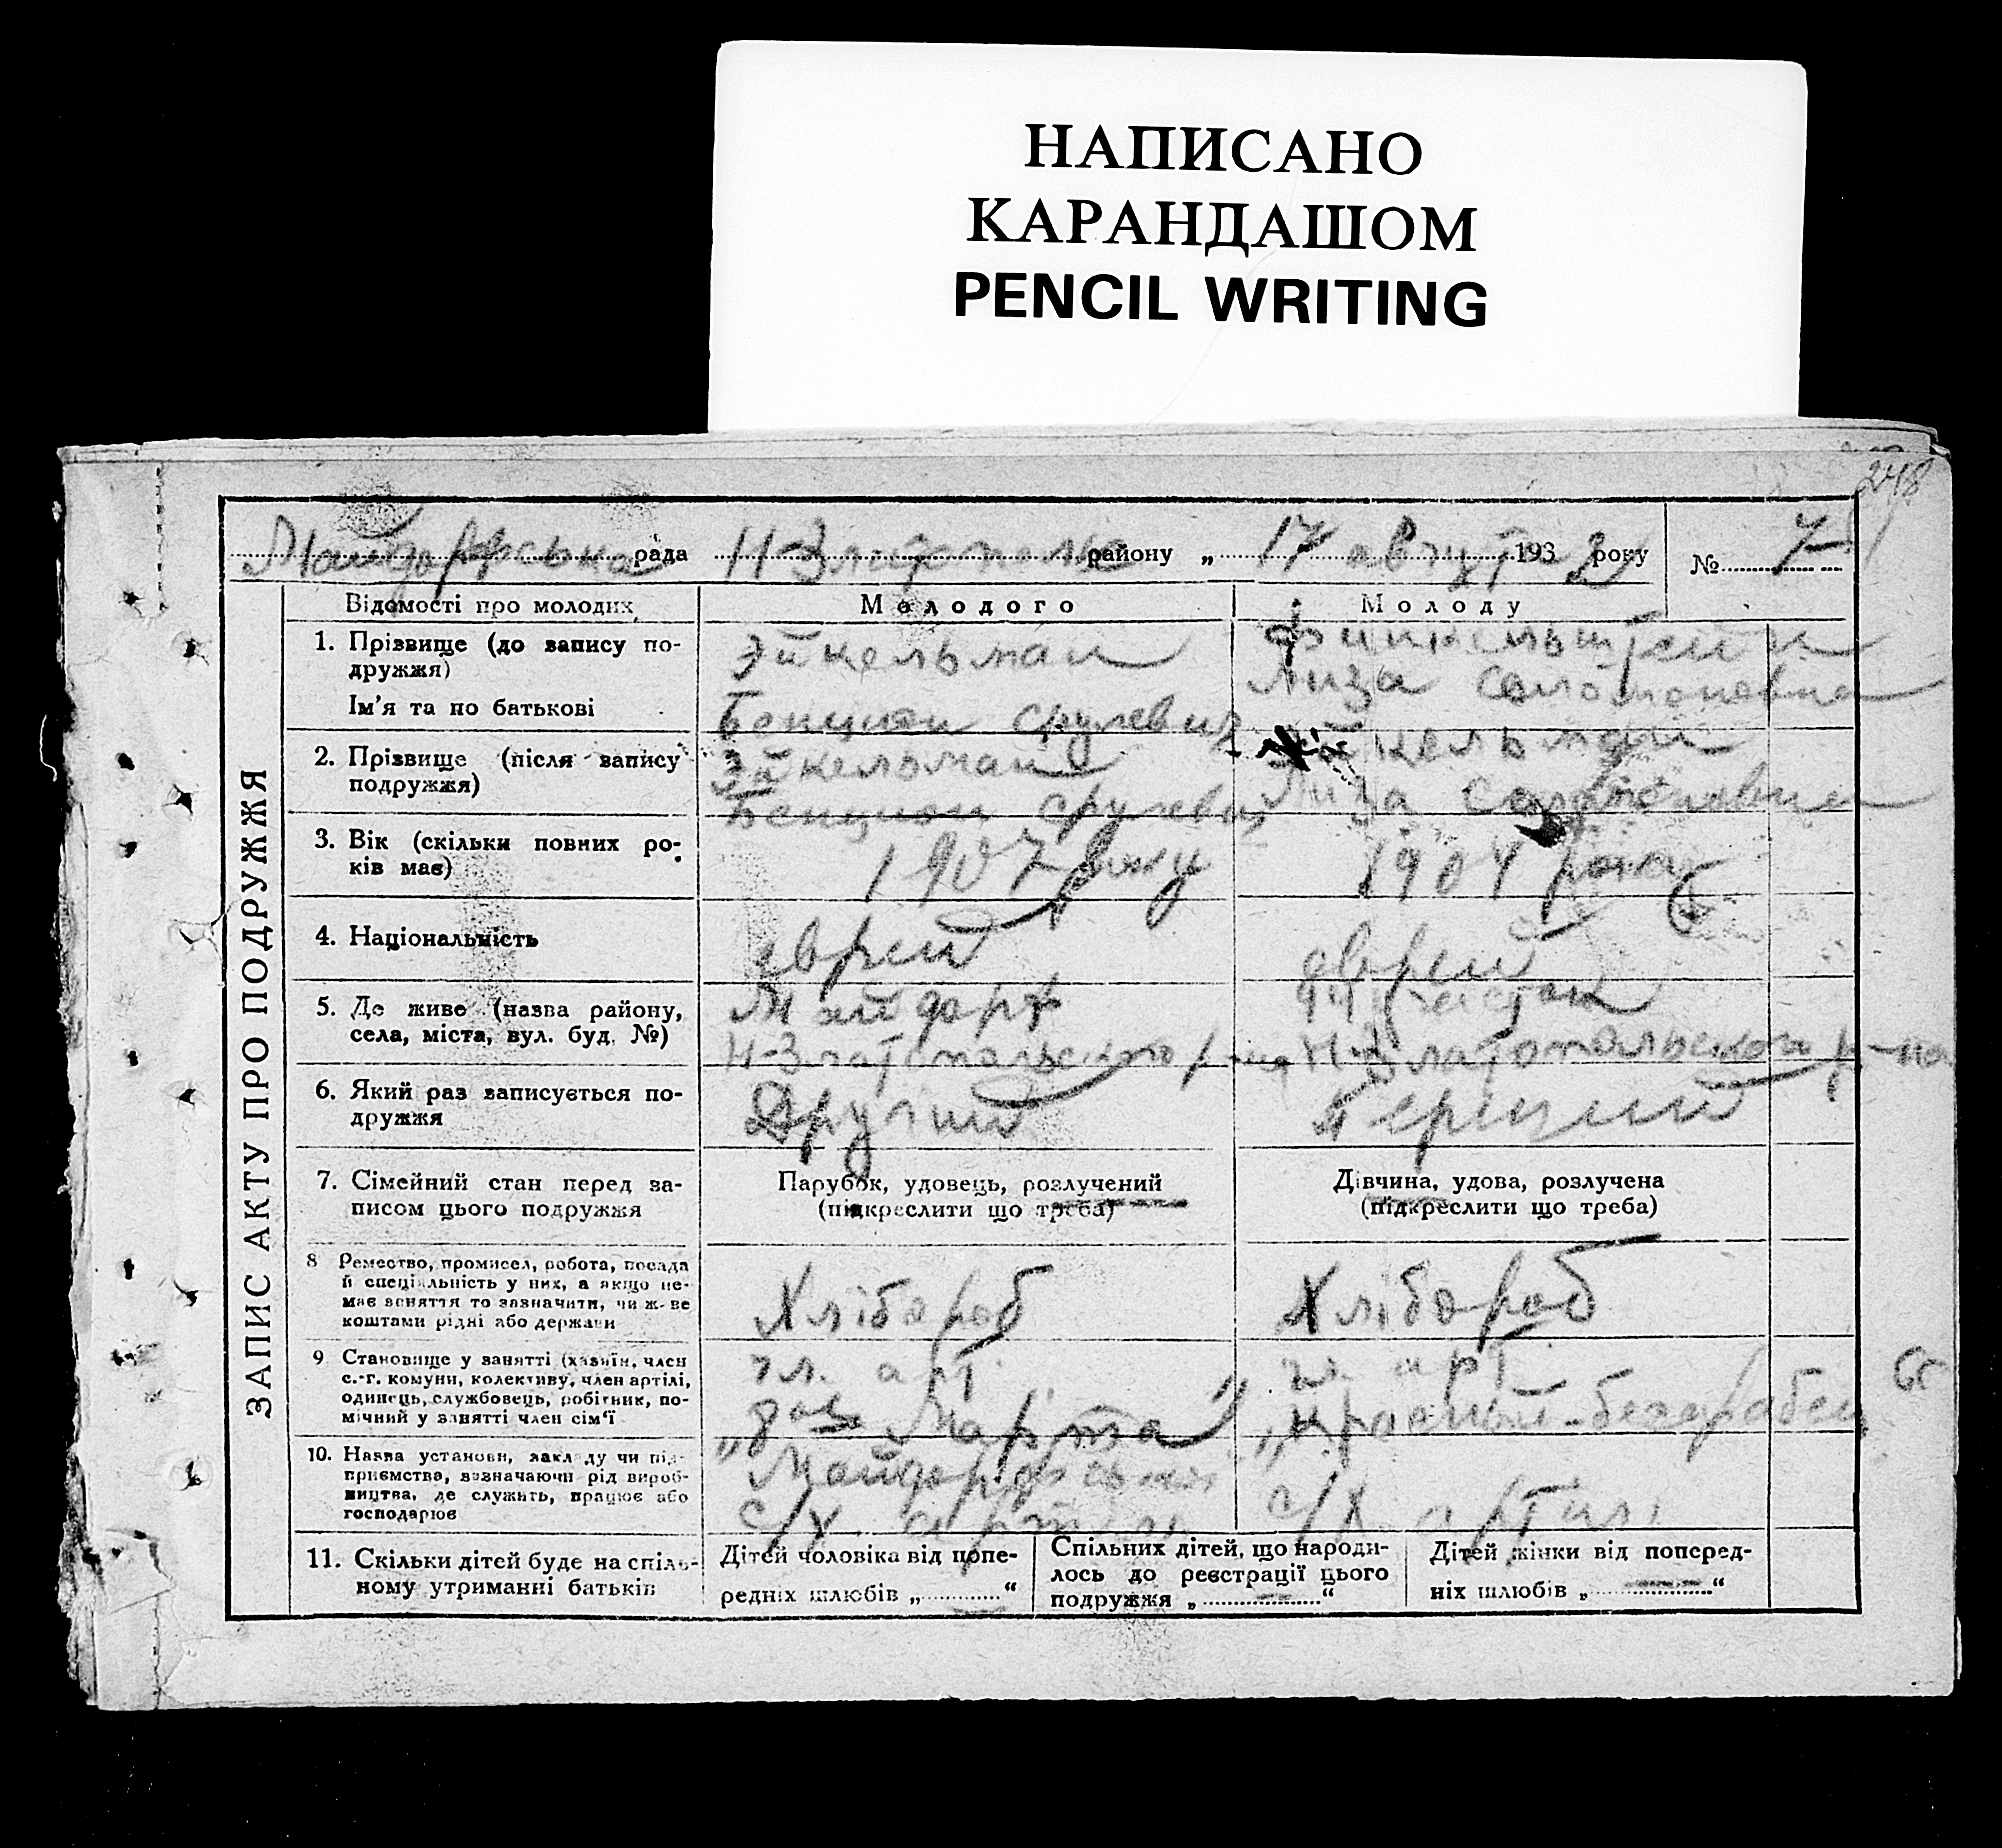 НАПИСАНО
КАРАНДАШОМ
PENCIL WRITING
248
Майдорфська рада Н-Златополь району „ 17 август 193 року № 7
ЗАПИС АКТУ ПРО ПОДРУЖЖЯ
Відомості про молодих
Молодого
Молоду
1. Прізвище (до запису по-
дружжя)
Ім'я та по батькові
Эйкельман
Бенцион Срулевич
Финкельштейн
Лиза Соломоновна
2. Прізвище (після запису
подружжя)
Эйкельман
Бенцион Срулевич
Эйкельман
Лиза Соломоновна
3. Вік (скільки повних ро-
ків має)
1907 року
1904 року
4. Національність
еврей
еврей
5. Де живе (назва району,
села, міста, вул. буд. №)
Майдорф
Н-Златопольского р-на
участок
Н-Златопольского р-на
6. Який раз записується по-
дружжя
Другий
Перший
7. Сімейний стан перед за-
писом цього подружжя
Парубок, удовець, розлучений
(підкреслити що треба)
Дівчина, удова, розлучена
(підкреслити що треба)
8 Ремество, промисел, робота, посада
й спеціальність у них, а якщо не-
має заняття то зазначити, чи живе
коштами рідні або держави
Хлібороб
Хлібороб
9 Становище у занятті (хазяїн, член
с.-г. комуни, колективу, член артілі,
одинець, службовець, робітник, по-
мічний у занятті член сім'ї
чл. арт.
„8oe Марта"
чл. арт.
„Красный
10. Назва установи, закладу чи під-
приємства, зазначаючи рід вироб-
ництва, де служить, працює або
господарює
с/х артіль
с/х артиль
11. Скільки дітей буде на спіль-
ному утриманні батьків
Дітей чоловіка від попе-
редніх шлюбів „ ............ “
Спільних дітей, що народи-
лось до реєстрації цього
подружжя „ ............ “
Дітей жінки від попоред-
ніх шлюбів „ ............ “